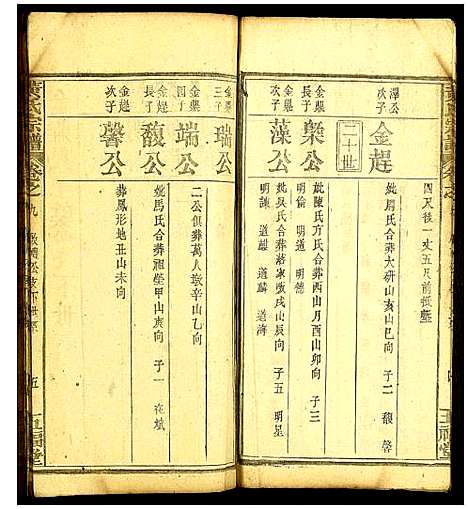 四尺後一丈五尺前抵塋
澤公次子
金趕
妣周氏合葬大硏山亥山巳向 子二 馥 馨
二十世
金㮣長子
㮣公
妣陳氏方氏合葬西山月酉山卯向 子三
明倫 明德
金㮣次子
藻公
妣吳氏合葬蔣家墩戌山辰向 子五 明星
明謙 道雄 道麟 道海
金㮣三子
瑞公
金㮣四子
端公
二公俱葬萬人墩辛山乙向
金趕長子
馥公
妣馬氏合葬祖塋甲山寅向 子一 在斌
金趕次子
馨公
葬鳳形地丑山未向
黄氏宗譜
卷之九
五